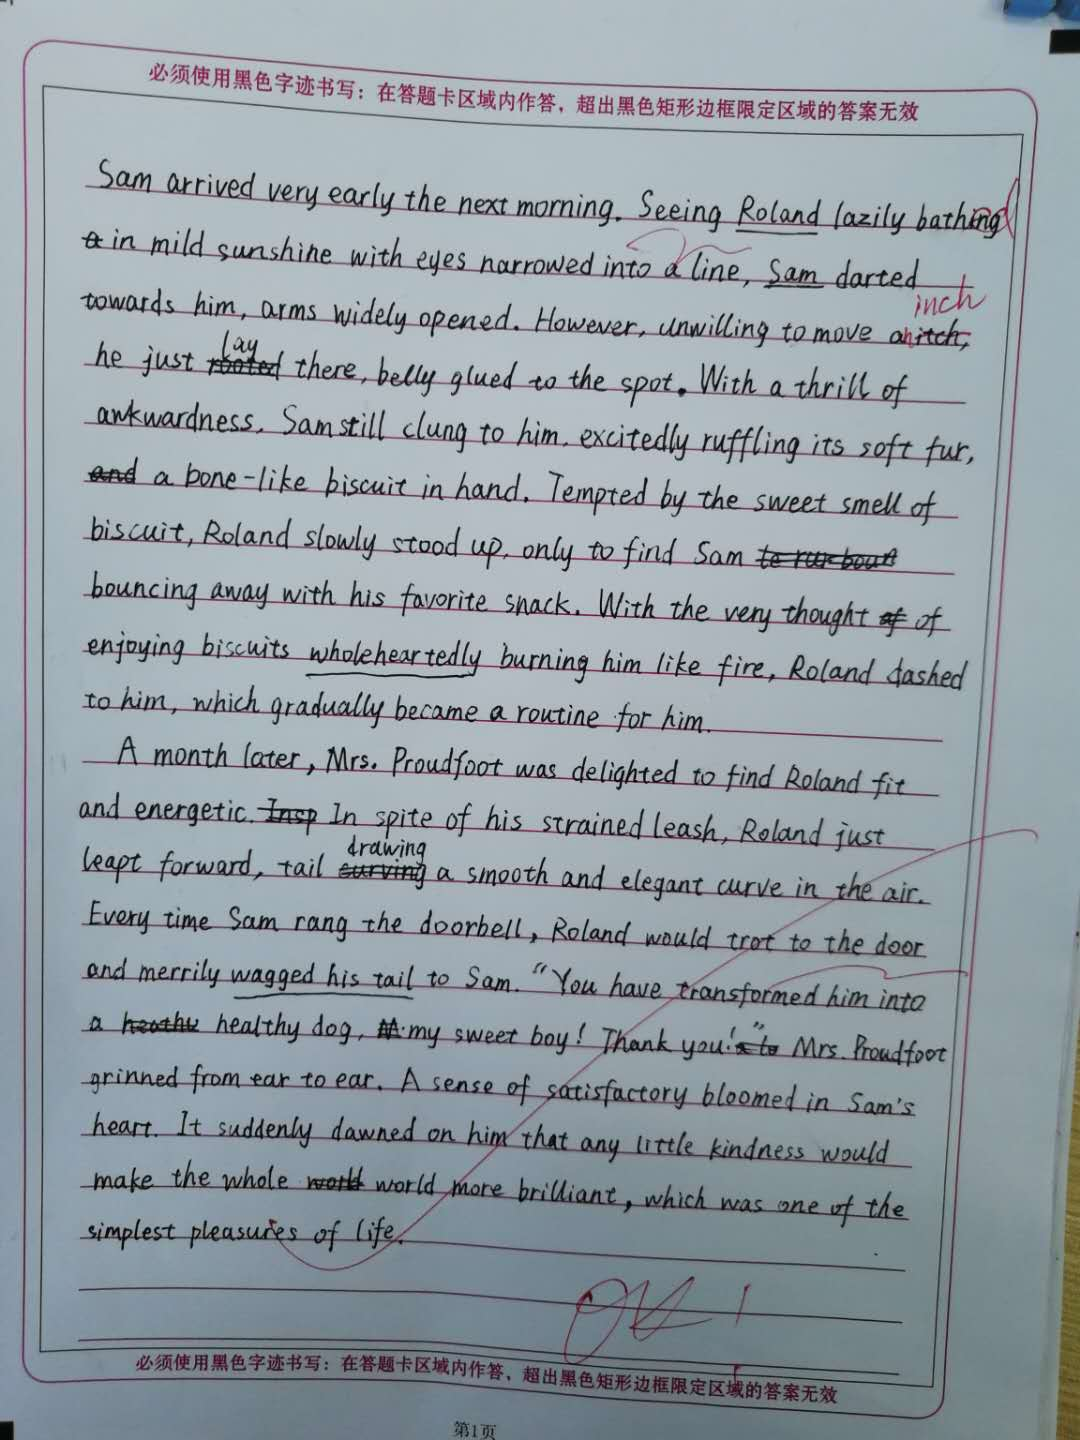 必须使用黑色字迹书写；在答题卡区域内作答，超出黑色矩形边框限定区域的答案无效
Sam arrived very early the next morning. Seeing Roland lazily bathing
in mild sunshine with eyes narrowed into a line, Sam darted
inch
towards him, arms widely opened. However, unwilling to move an itch,
lay
he just rooted there, belly glued to the spot. With a thrill of
awkwardness, Sam still clung to him, excitedly ruffling its soft fur,
and a bone-like biscuit in hand. Tempted by the sweet smell of
biscuit, Roland slowly stood up, only to find Sam
bouncing away with his favorite snack. With the very thought of of
enjoying biscuits wholeheartedly burning him like fire, Roland dashed
to him, which gradually became a routine for him.
A month later, Mrs. Proudfoot was delighted to find Roland fit
and energetic. Insp In spite of his strained leash, Roland just
drawing
leapt forward, tail curving a smooth and elegant curve in the air.
Every time Sam rang the doorbell, Roland would trot to the door
and merrily wagged his tail to Sam. "You have transformed him into
a healthy dog, my sweet boy! Thank you!" Mrs. Proudfoot
grinned from ear to ear. A sense of satisfactory bloomed in Sam's
heart. It suddenly dawned on him that any little kindness would
make the whole world world more brilliant, which was one of the
simplest pleasures of life.
必须使用黑色字迹书写；在答题卡区域内作答，超出黑色矩形边框限定区域的答案无效
第1页